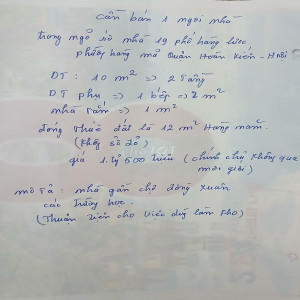 Cần bán 1 ngôi nhà
trong ngõ số nhà 19 phố hàng lược
phường hàng mã Quận Hoàn Kiến - H Nội
DT : 10 m² => 2 tầng
DT phụ => 1 bếp => 2 m²
nhà tắm => 1 m²
đóng thuế đất là 12 m² Hàng năm.
(Không sổ đỏ)
giá 1.tỷ 500 triệu (chính chủ không qua
môi giới)
mô tả : nhà gần chợ đồng Xuân
các trường học.
(Thuận tiện cho việc làm kho)